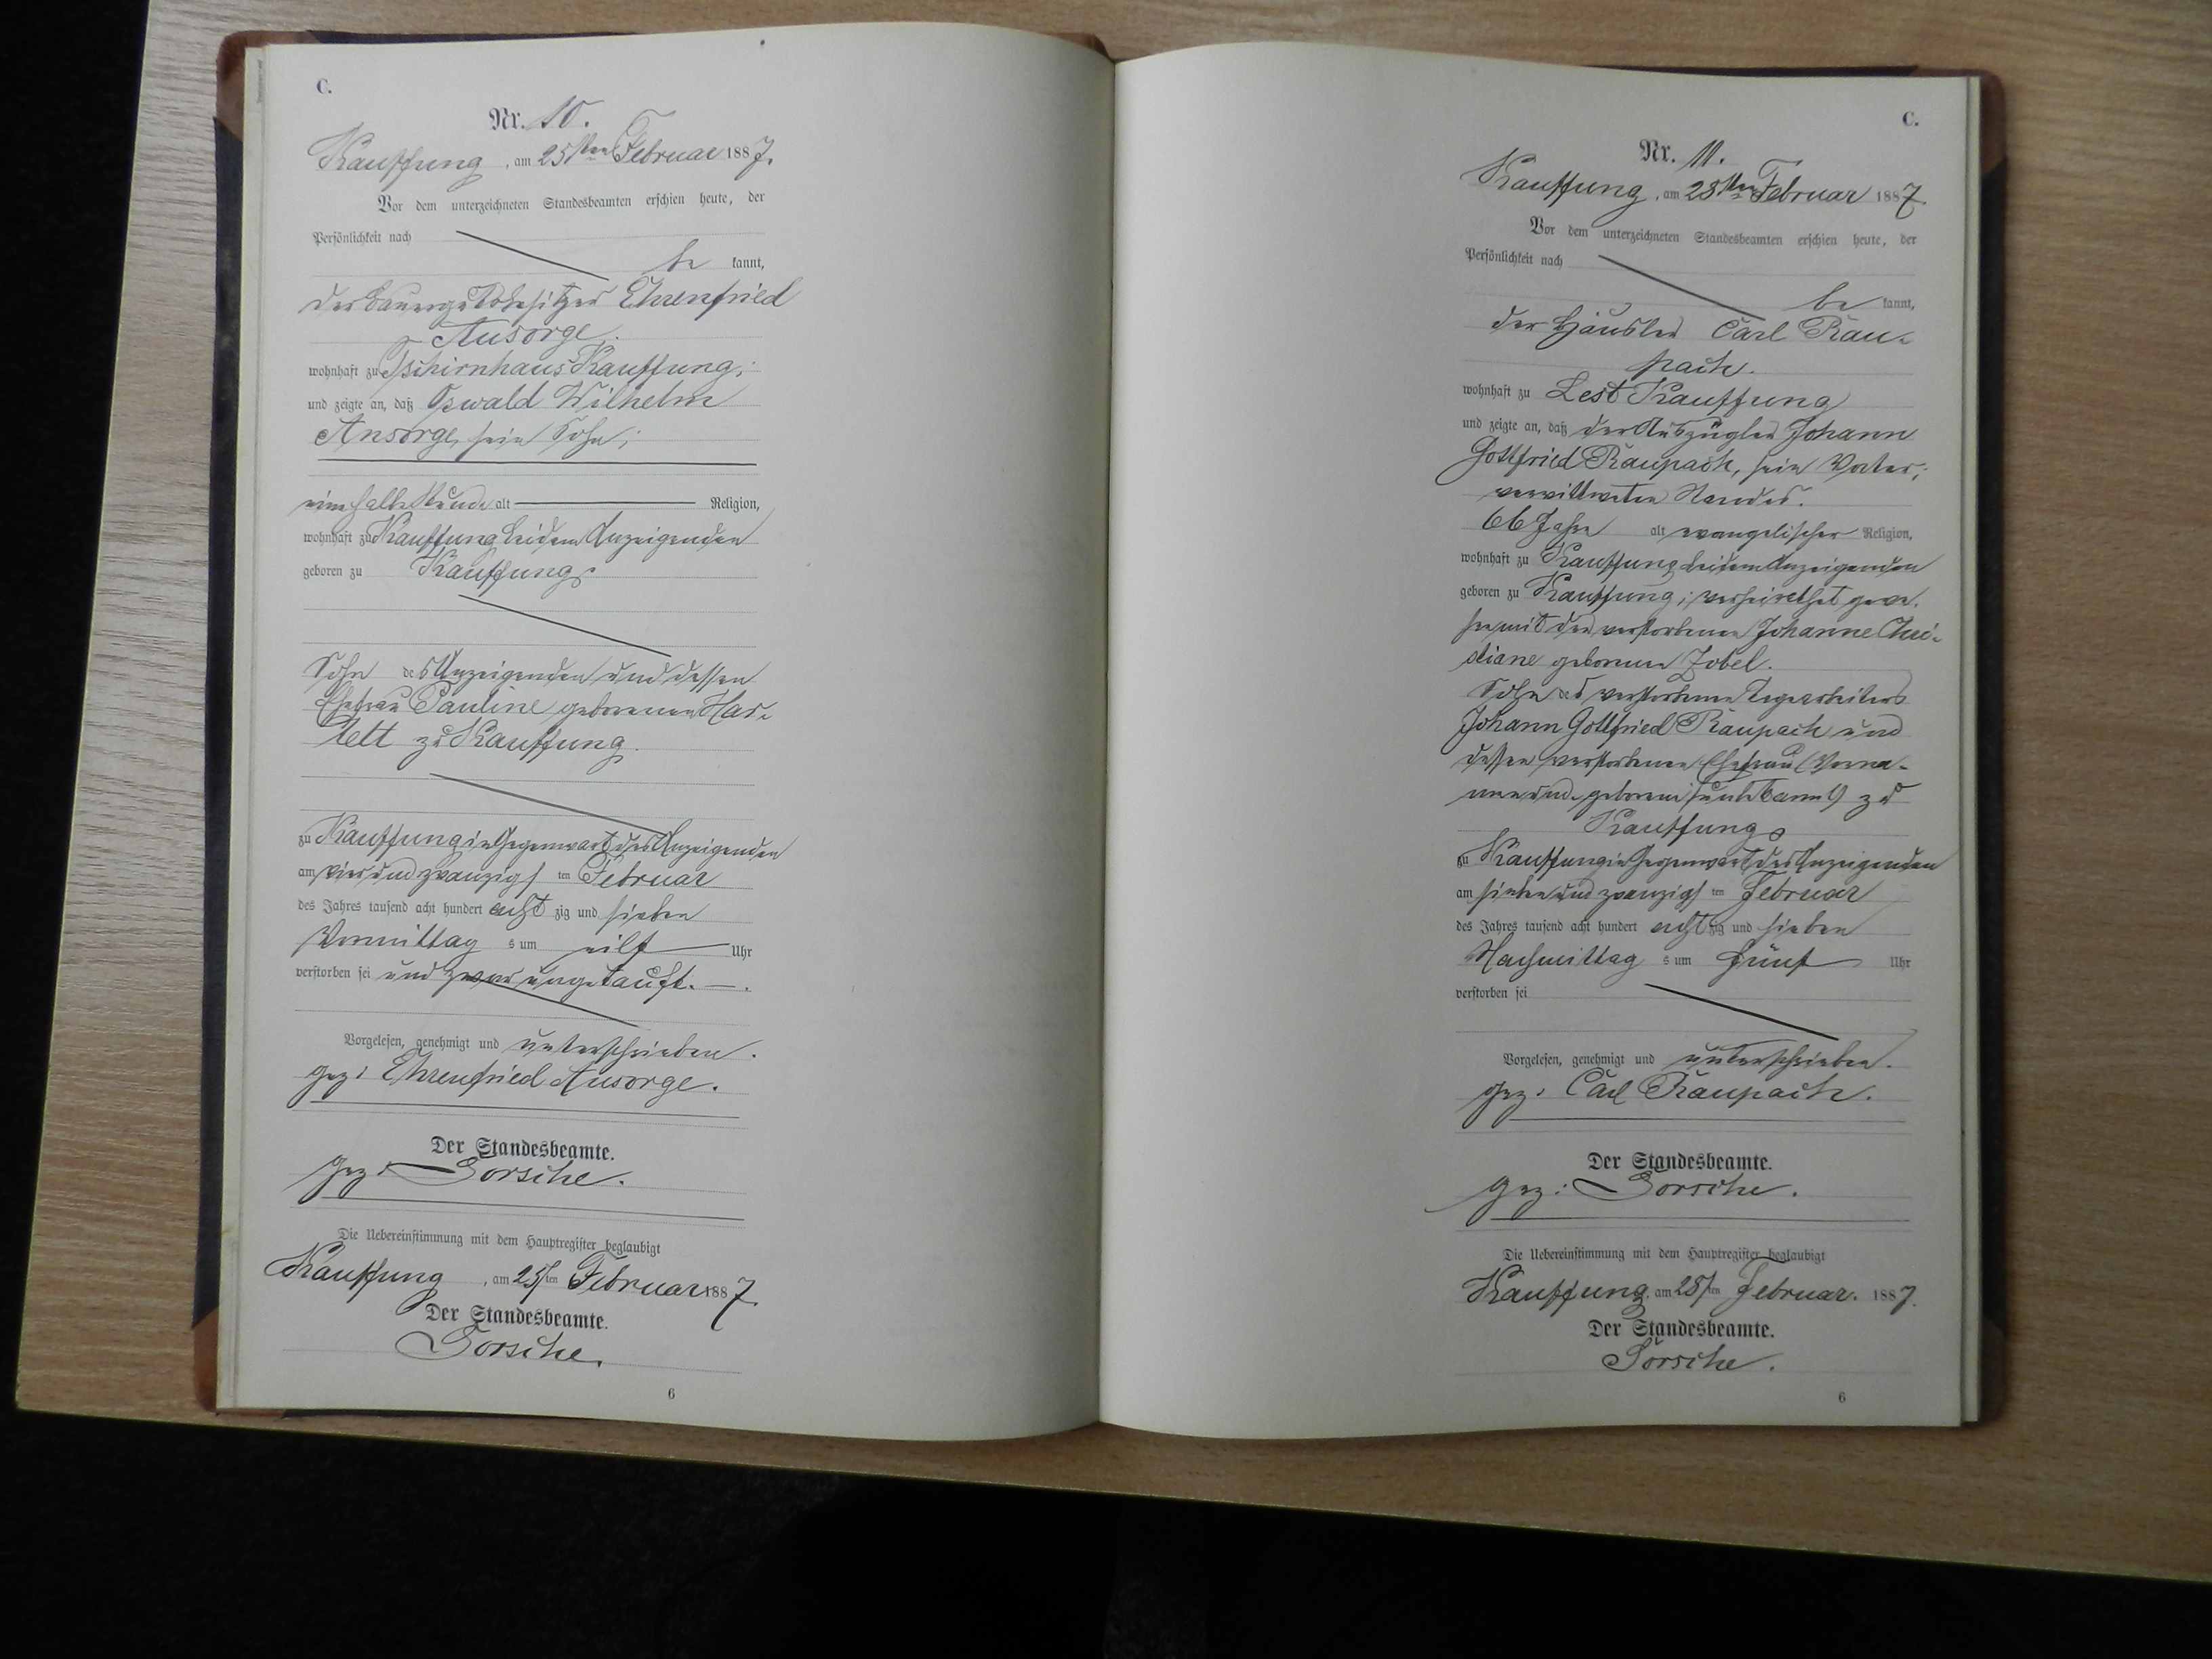 C.
Nr. 10.
Kauffung, am 25ten Februar 1887.
Vor dem unterzeichneten Standesbeamten erschien heute, der
Persönlichkeit nach
be kannt,
der Bauergutsbesitzer Ehrenfried
Ansorge.
wohnhaft zu Tschirnhaus Kauffung;
und zeigte an, daß Oswald Wilhelm
Ansorge, sein Sohn;
eine halbe Stunde alt Religion,
wohnhaft zu Kauffung bei dem Anzeigenden
geboren zu Kauffung
Sohn des Anzeigenden und dessen
Ehefrau Pauline geborenen Har-
tett zu Kauffung.
zu Kauffung in Gegenwart des Anzeigenden
am vier und zwanzigs ten Februar
des Jahres tausend acht hundert acht zig und sieben
Vormittag s um eilf Uhr
verstorben sei und zwar ungetauft. —.
Vorgelesen, genehmigt und unterschrieben.
gez: Ehrenfried Ansorge.
Der Standesbeamte.
gez: Sorsche.
Die Uebereinstimmung mit dem Hauptregister beglaubigt
Kauffung, am 25ten Februar 1887.
Der Standesbeamte.
Sorsche.
6
C.
Nr. 11.
Kauffung, am 28ten Februar 1887.
Vor dem unterzeichneten Standesbeamten erschien heute, der
Persönlichkeit nach
be kannt,
der Häusler Carl Rau-
pach.
wohnhaft zu Lest Kauffung
und zeigte an, daß der Auszügler Johann
Gottfried Raupach, sein Vater;
verwittweten Standes.
66 Jahre alt evangelischer Religion,
wohnhaft zu Kauffung bei dem Anzeigenden
geboren zu Kauffung; verheirathet gewe-
sen mit der verstorbenen Johanne Chri-
stiane geborenen Zobel.
Sohn des verstorbenen Tagearbeiters
Johann Gottfried Raupach und
dessen verstorbenen Ehefrau (Vorna-
men und geborene unbekannt) zu
Kauffung
zu Kauffung in Gegenwart des Anzeigenden
am sieben und zwanzigs ten Februar
des Jahres tausend acht hundert acht zig und sieben
Nachmittag s um fünf Uhr
verstorben sei
Vorgelesen, genehmigt und unterschrieben.
gez: Carl Raupach.
Der Standesbeamte.
gez: Sorsche.
Die Uebereinstimmung mit dem Hauptregister beglaubigt
Kauffung, am 28ten Februar. 1887.
Der Standesbeamte.
Sorsche.
6